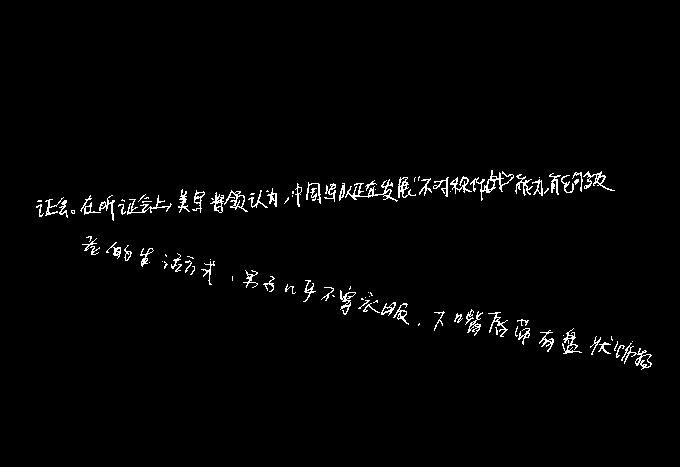 证会。在听证会上,美军将领认为,中国军队正在发展“不对称作战”能力,能够极
老的生活方式,男子几乎不穿衣服,下嘴唇带有盘状饰物